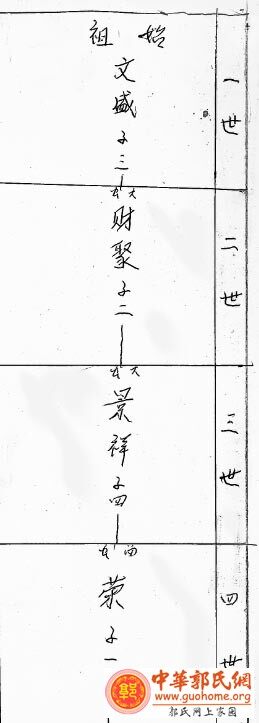 一世
始祖
文盛子三
二世
财聚子二
三世
景祥子四
四世
荣子一
中華郭氏網
www.guohome.org
郭氏网上家園